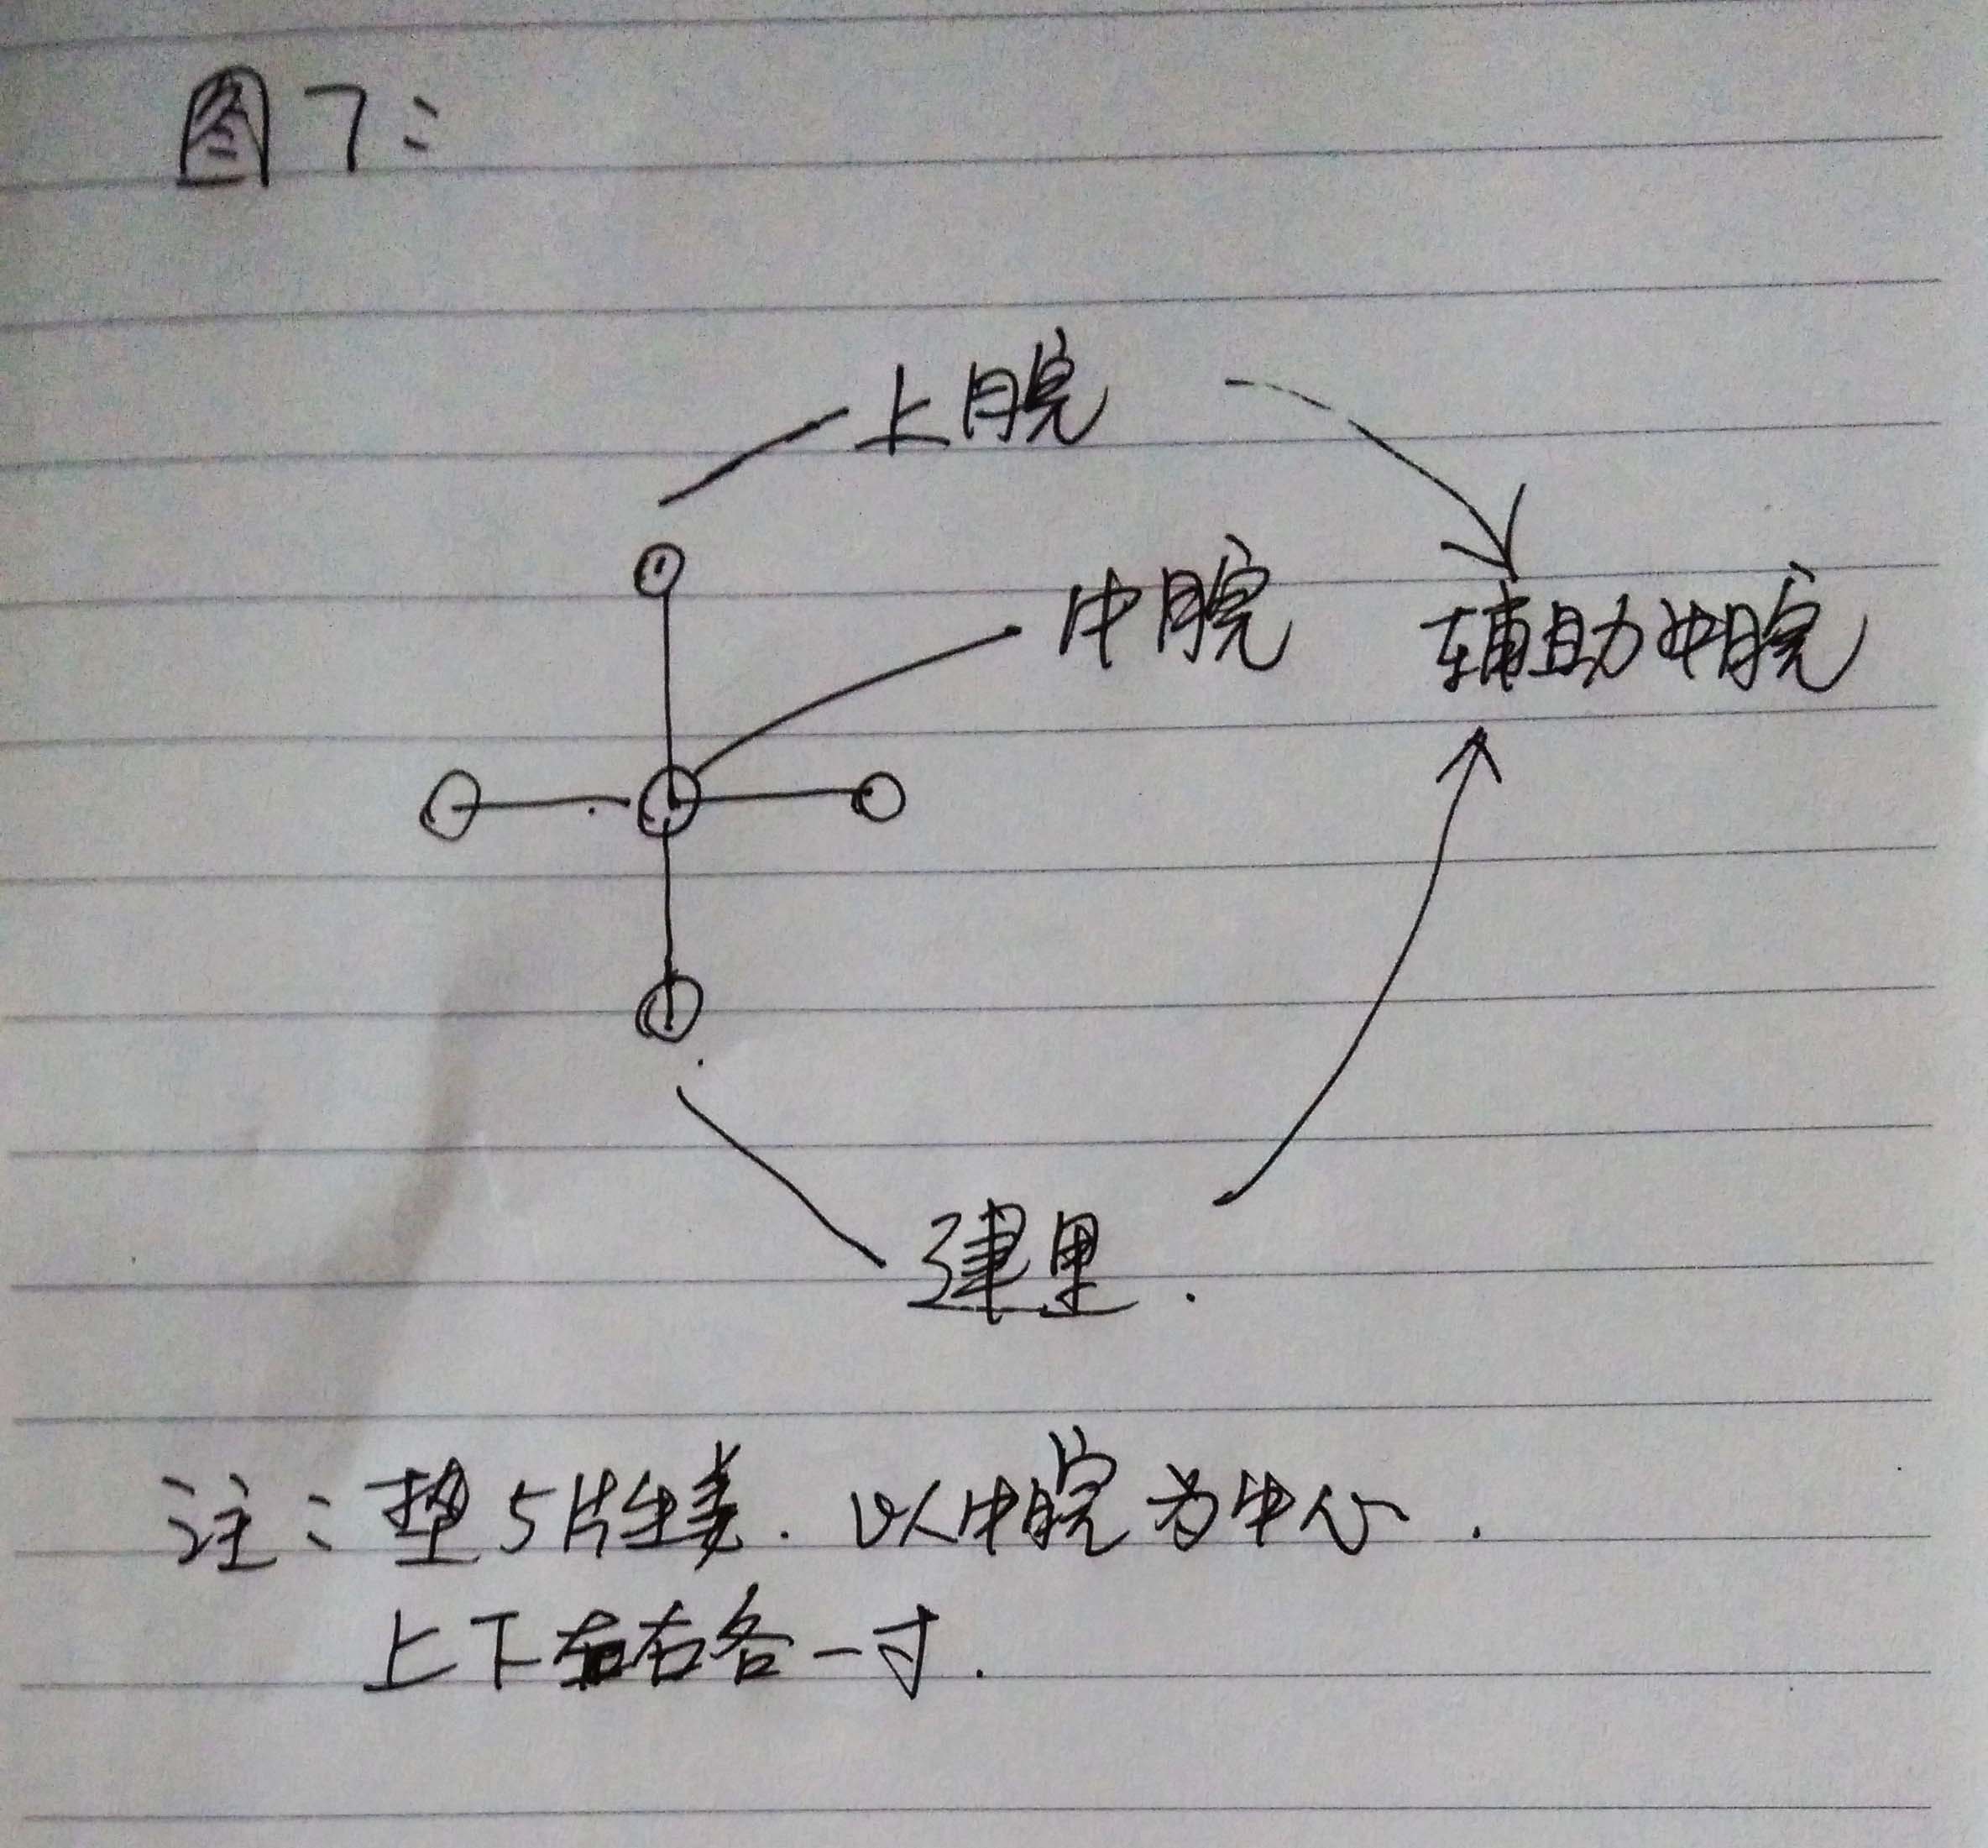 图7:
上脘
中脘
辅助中脘
建里.
注:垫5片生姜.以中脘为中心.
上下左右各一寸.